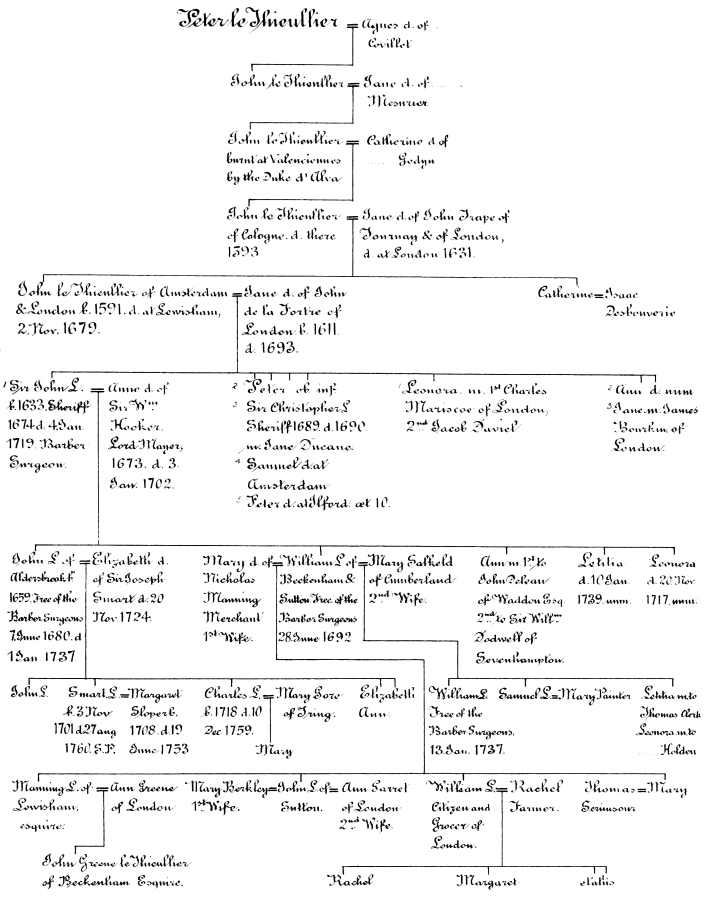 Peter le Thieullier = Agnes d. of ....
Covillet
John le Thieullier = Jane d. of ......
Mesurier
John le Thieullier
burnt at Valenciennes
by the Duke d' Alva
= Catherine d. of
..... Godyn
John le Thieullier
of Cologne. d. there
1593
= Jane d. of John Frape of
Tournay & of London,
d. at London 1631.
John le Thieullier of Amsterdam
& London b. 1591. d. at Lewisham,
2. Nov. 1679.
= Jane d. of John
de la Fortre of
London b. 1611.
d. 1693.
Catherine = Isaac
Desbouverie
1 Sir John L.
b. 1633. Sheriff
1674 d. 4. Jan.
1719. Barber
Surgeon.
= Anne d. of
Sir Wm
Hooker.
Lord Mayer,
1673. d. 3.
Jan. 1702.
2 Peter ob. inf.
3 Sir Christopher L.
Sheriff 1689. d. 1690
m. Jane Ducane.
4 Samuel d. at
Amsterdam
5 Peter d. at Ilford. æt 10.
1 Leonora. m. 1st Charles
Mariscoe of London,
2nd Jacob Daviel
2 Ann d. num
3 Jane. m. James
Bourk. m. of
London.
John L. of
Aldersbrook b.
1659. Free of the
Barber Surgeons
7. June 1680. d
1 Jan. 1737.
= Elizabeth d.
of Sir Joseph
Smart d. 20
Nov. 1724.
Mary d. of
Nicholas
Manning
Merchant
1st Wife.
= William L. of
Beckenham &
Sutton Free of the
Barber Surgeons
28 June 1692
= Mary Salkeld
of Cumberland
2nd Wife.
Ann m. 1st to
John Delvau
of Waddon Esq
2nd to Sir Willm
Dodwell of
Sevenhampton.
Letitia
d. 10 Jan.
1739. unm.
Leonora
d. 20. Nov
1717. unm.
John L.
Smart L.
b. 3 Nov
1701 d. 27 aug
1760. S.P.
= Margaret
Sloper b.
1708. d. 19
June 1753
Charles L.
b. 1718 d. 10
Dec 1759.
= Mary Goro
of Tring.
Mary
Elizabeth
Ann.
William L.
Free of the
Barber Surgeons,
13. Jan. 1737.
Samuel L. = Mary Painter
Letitia m. to
Thomas Clerk
Leonora m. to
Holden
Manning L. of
Lewisham,
esquire.
= Ann Greene
of London
Mary Berkley
1st Wife.
= John L. of
Sutton.
= Ann Garret
of London
2nd Wife.
William L.
Citizen and
Grocer of
London.
= Rachel
Farmer.
Thomas
Scrimsour
= Mary
John Greene le Thieullier
of Beckenham Esquire.
Rachel
Margaret